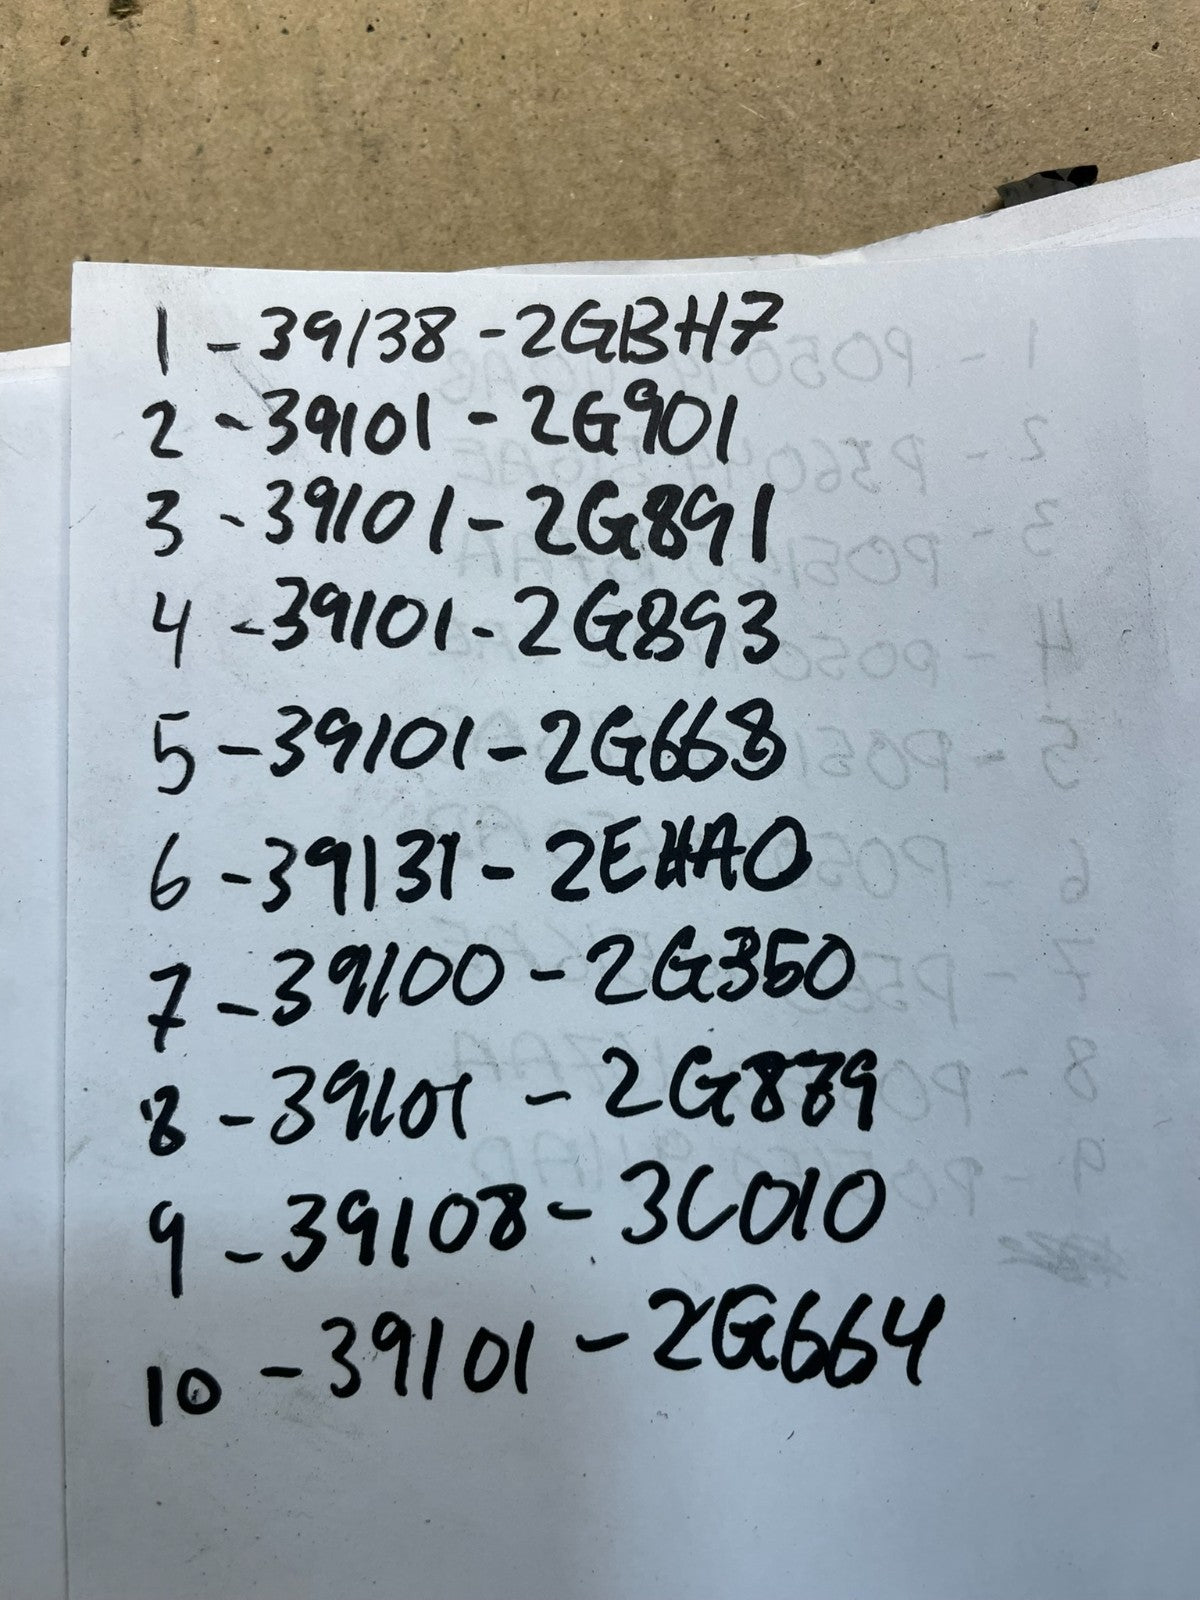 1 - 39138 - 2GBH7
2 - 39101 - 2G901
3 - 39101 - 2G891
4 - 39101 - 2G893
5 - 39101 - 2G668
6 - 39131 - 2EHA0
7 - 39100 - 2G350
8 - 39101 - 2G879
9 - 39108 - 3C010
10 - 39101 - 2G664